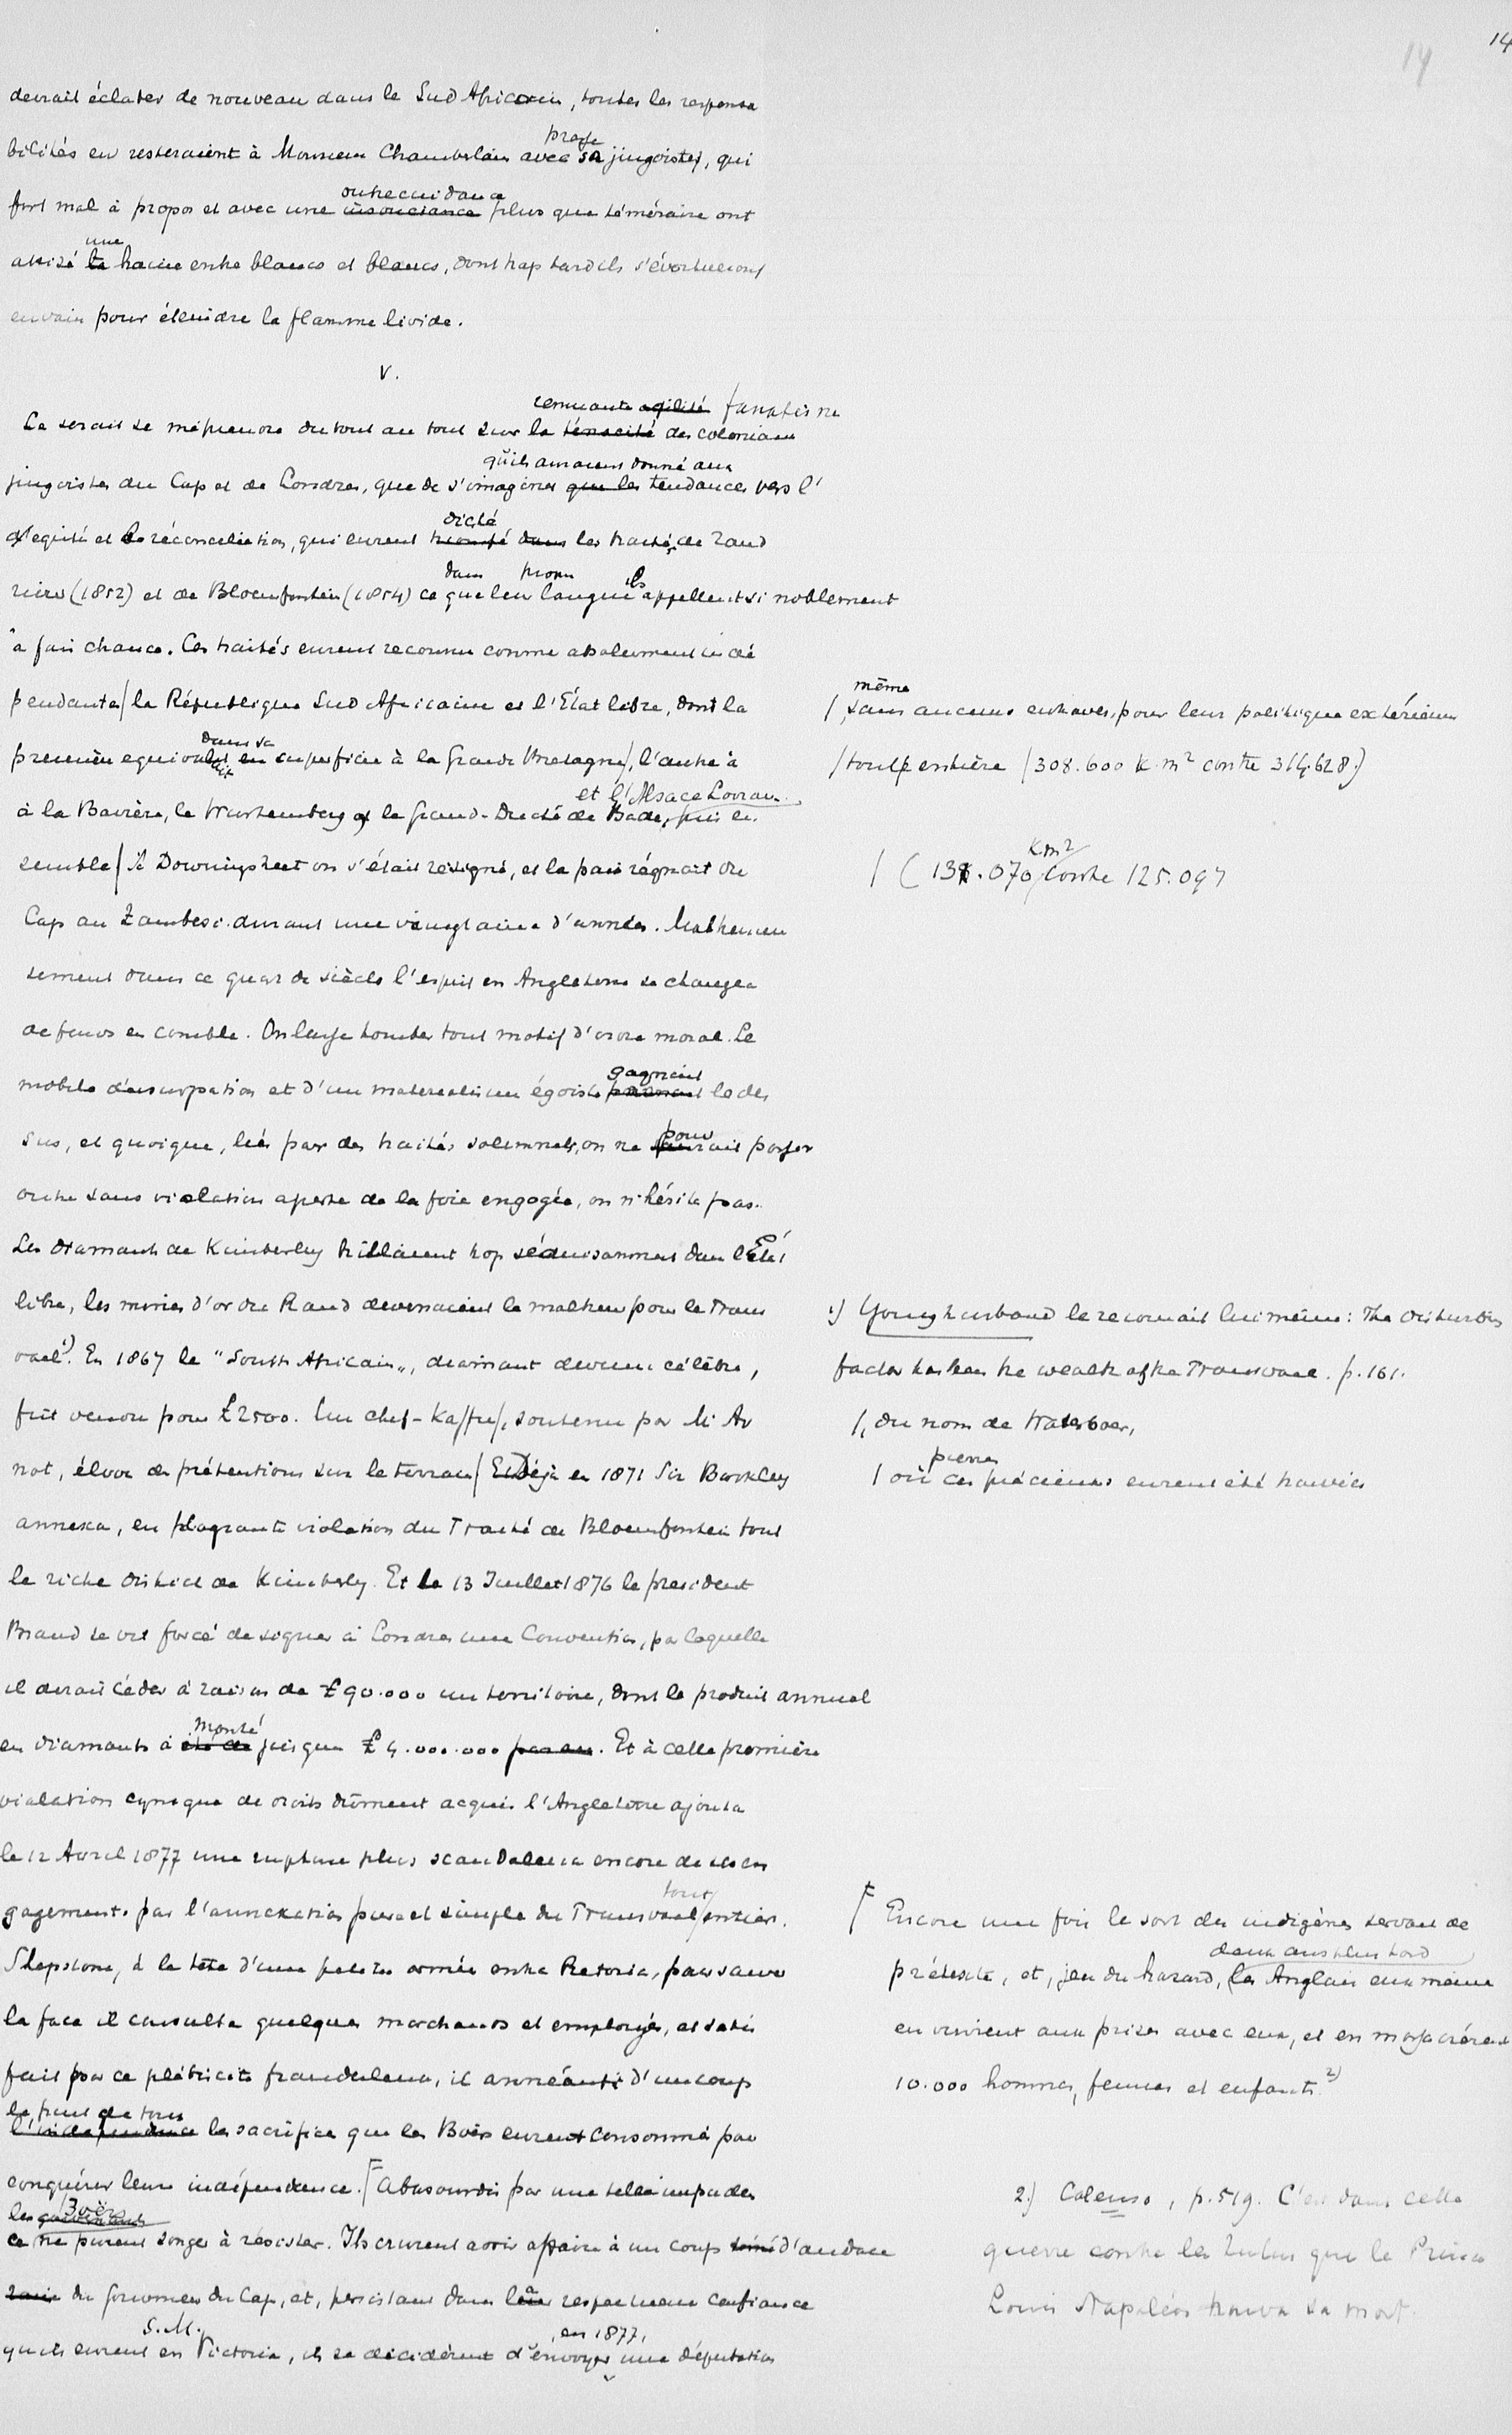 14
14
devrait éclater de nouveau dans le Sud Africain, toutes les responsa
bilités en resteraient à Monsieur Chamberlain avec sa jingoistes, qui
outrecuidance
fort mal à propos et avec une insouciance plus que téméraire ont
une
attisé la haine entre blancs et blancs, dont trop tard ils s'évertueront
en vain pour éteindre la flamme livide.
V.
remuante agilité fanatisme
Ce serait se méprendre du tout au tout sur la ténacité des coloniaux
qu'ils auraient donné aux
jingoistes du Cap et de Londres, que de s'imaginer que les tendances vers l'
dicté
équité et la réconciliation, qui eurent triomphé dans les traités de Zand
dans propre ils
rivier (1852) et de Bloemfontein (1854) ce que leur langue appellent si noblement
a fair chance. Ces traités eurent reconnu comme absolument indé
pendantes / la République Sud Africaine et l'État libre, dont la
même
/ sans aucunes entraves, pour leur politique extérieure
dans sa
première equivalait en superficie à la Grande Bretagne /, l'autre à
/ toute entière (308.600 K.m² contre 314.628.)
et l'Alsace Lorraine
à la Bavière, le Wurtemberg et le Grand-Duché de Bade, pris en
semble / À Downingstreet on s'était resigné, et la paix régnait du
Km²
/ (131.070 contre 125.097
Cap au Zambesi durant une vingtaine d'années. Malheureu
sement dans ce quart de siècle l'esprit en Angleterre se changea
de fonds en comble. On laissa tomber tout motif d'ordre moral. Le
gagnaient
mobile d'usurpation et d'un materialisme égoiste prenaient le des
pour
sus, et quoique, liés par des traités solemnels, on ne saurait passer
outre sans violation aperte de la foie engagée, on n'hésita pas.
Les diamants de Kimberley brillaient trop séduisamment dans l'État
libre, les mines d'or du Rand devenaient le malheur pour le Trans
1) Younghusband le reconnait lui même: The disturbing
vaal 1). En 1867 le "South African", diamant devenu célèbre,
factor has been the wealth of the Transvaal. p. 161.
fût vendu pour £2500. Un chef-Kaffre /, soutenu par M. Ar
/, du nom de Waterboer,
not, éleva des prétentions sur le terrain / Déjà en 1871 Sir Barkley
pierres
/ où ces précieuses eurent été trouvées
annexa, en flagrante violation du Traité de Bloemfontein tout
le riche district de Kimberly. Et le 13 Juillet 1876 le president
Brand se vit forcé de signer à Londres une Convention, par laquelle
il devait céder à raison de £90.000 un territoire, dont le produit annuel
monté
en diamants à été de jusque £4.000.000 par an. Et à cette première
violation cynique de droits dûment acquis l'Angleterre ajouta
le 12 Avril 1877 une rupture plus scandaleuse encore de ses en
tout
gagements par l'annexation pure et simple du Transvaal entier.
Shepstone, à la tête d'une petite armée entra Pretoria, pour sauver
la face il consulta quelques marchands et employés, et satis
fait par ce plébicite frauduleux, il annéanti d'un coup
le fruit de tous
l'indépendance les sacrifices que les Boërs eurent consommé pour
conquérir leur indépendance. / Abasourdis par une telle impuden
les Boërs
ce ne purent songer à résister. Ils crurent avoir affaire à un coup d'audace
du Gouverneur du Cap, et, persistant dans la respectueuse confiance
S. M. en 1877,
qu'ils eurent en Victoria, ils se décidèrent d'envoyer une députation
Encore une fois le sort des indigènes servait de
deux ans plus tard
prétexte, et, jeu du hazard, les Anglais eux même
en vinrent aux prises avec eux, et en massacrèrent
10.000 hommes, femmes et enfants 2)
2.) Colenso, p. 519. C'est dans cette
guerre contre les Zulus que le Prince
Louis Napoléon trouva sa mort.